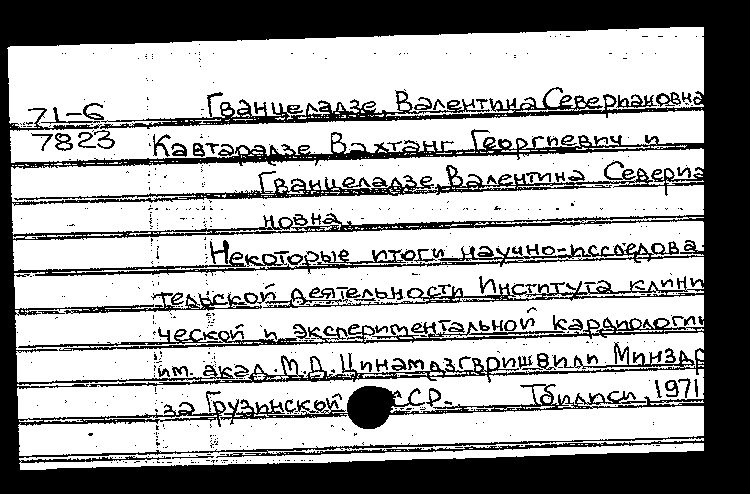 71-6 Гванцеладзе, Валентина Севериановна
7823 Кавтарадзе, Вахтанг Георгиевич и
Гванцеладзе, Валентина Севериа
новна.
Некоторые итоги научно-исследова-
тельской деятельности Института клини
ческой и экспериментальной кардиологии
им. акад. М.Д. Цинамдзгвришвили Минздр
за Грузинской ССР. Тбилиси, 1971